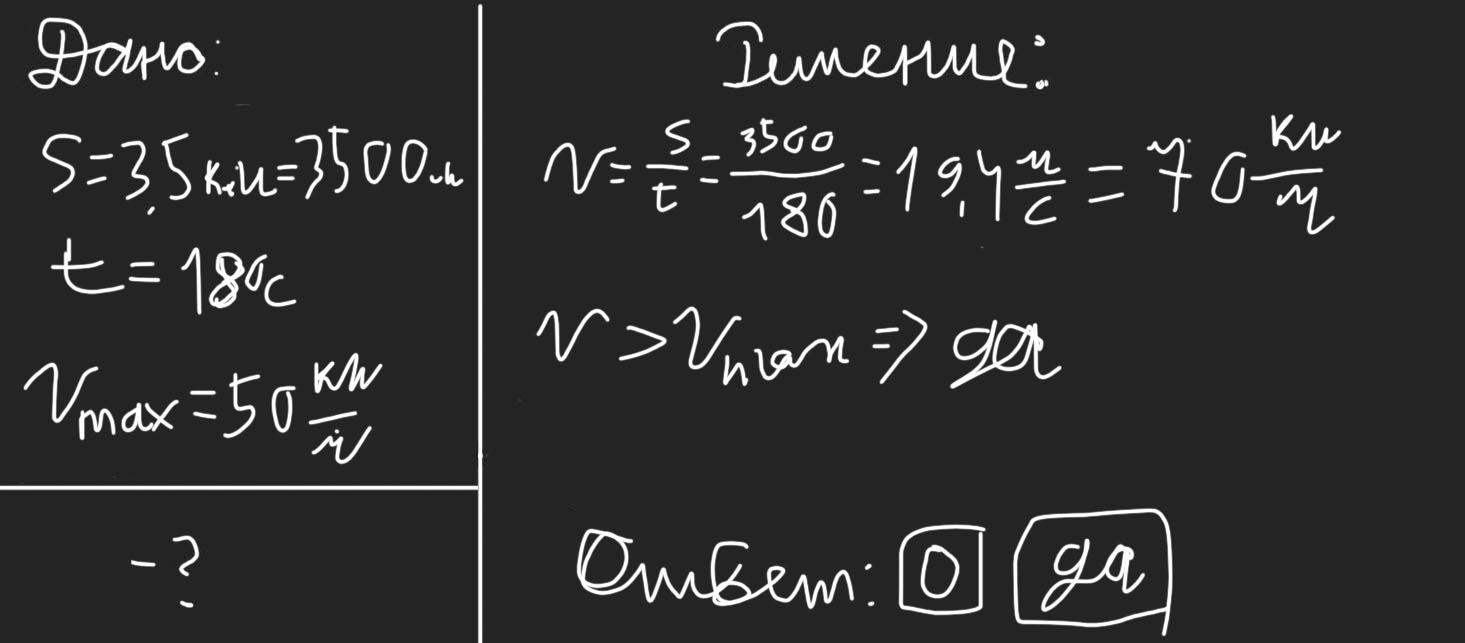 Дано:
S=3,5км=3500м
t=180с
Vmax=50 км/ч
-?
Решение:
V= S/t = 3500/180 =19,4 м/с = 70 км/ч
V>Vmax => да
Ответ: 0 да